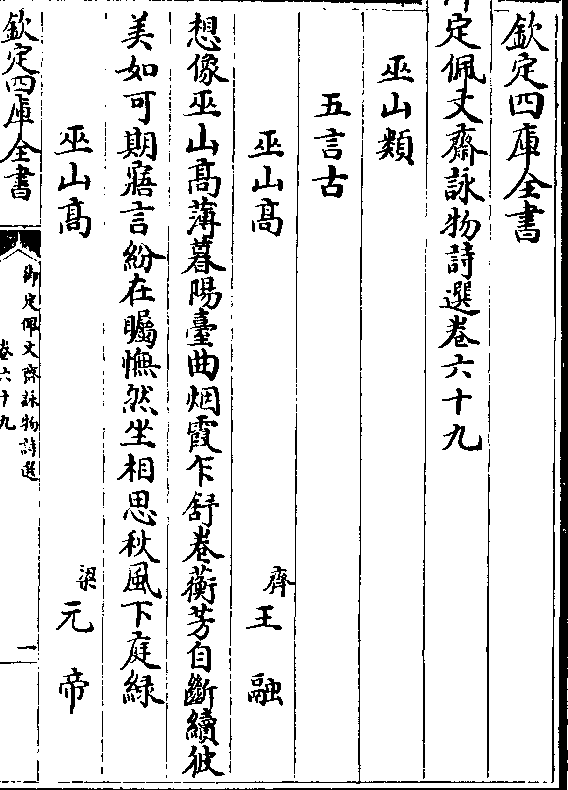 欽定四庫全書
定佩文齋詠物詩選卷六十九
巫山類
五言古
巫山髙　齊王融
想像巫山髙薄暮陽臺曲烟霞乍舒卷蘅芳自斷續彼
美如可期寤言紛在矚憮然坐相思秋風下庭緑
巫山髙　梁元帝
欽定四庫全書
御定佩文齊詠物詩選
卷六十九
一